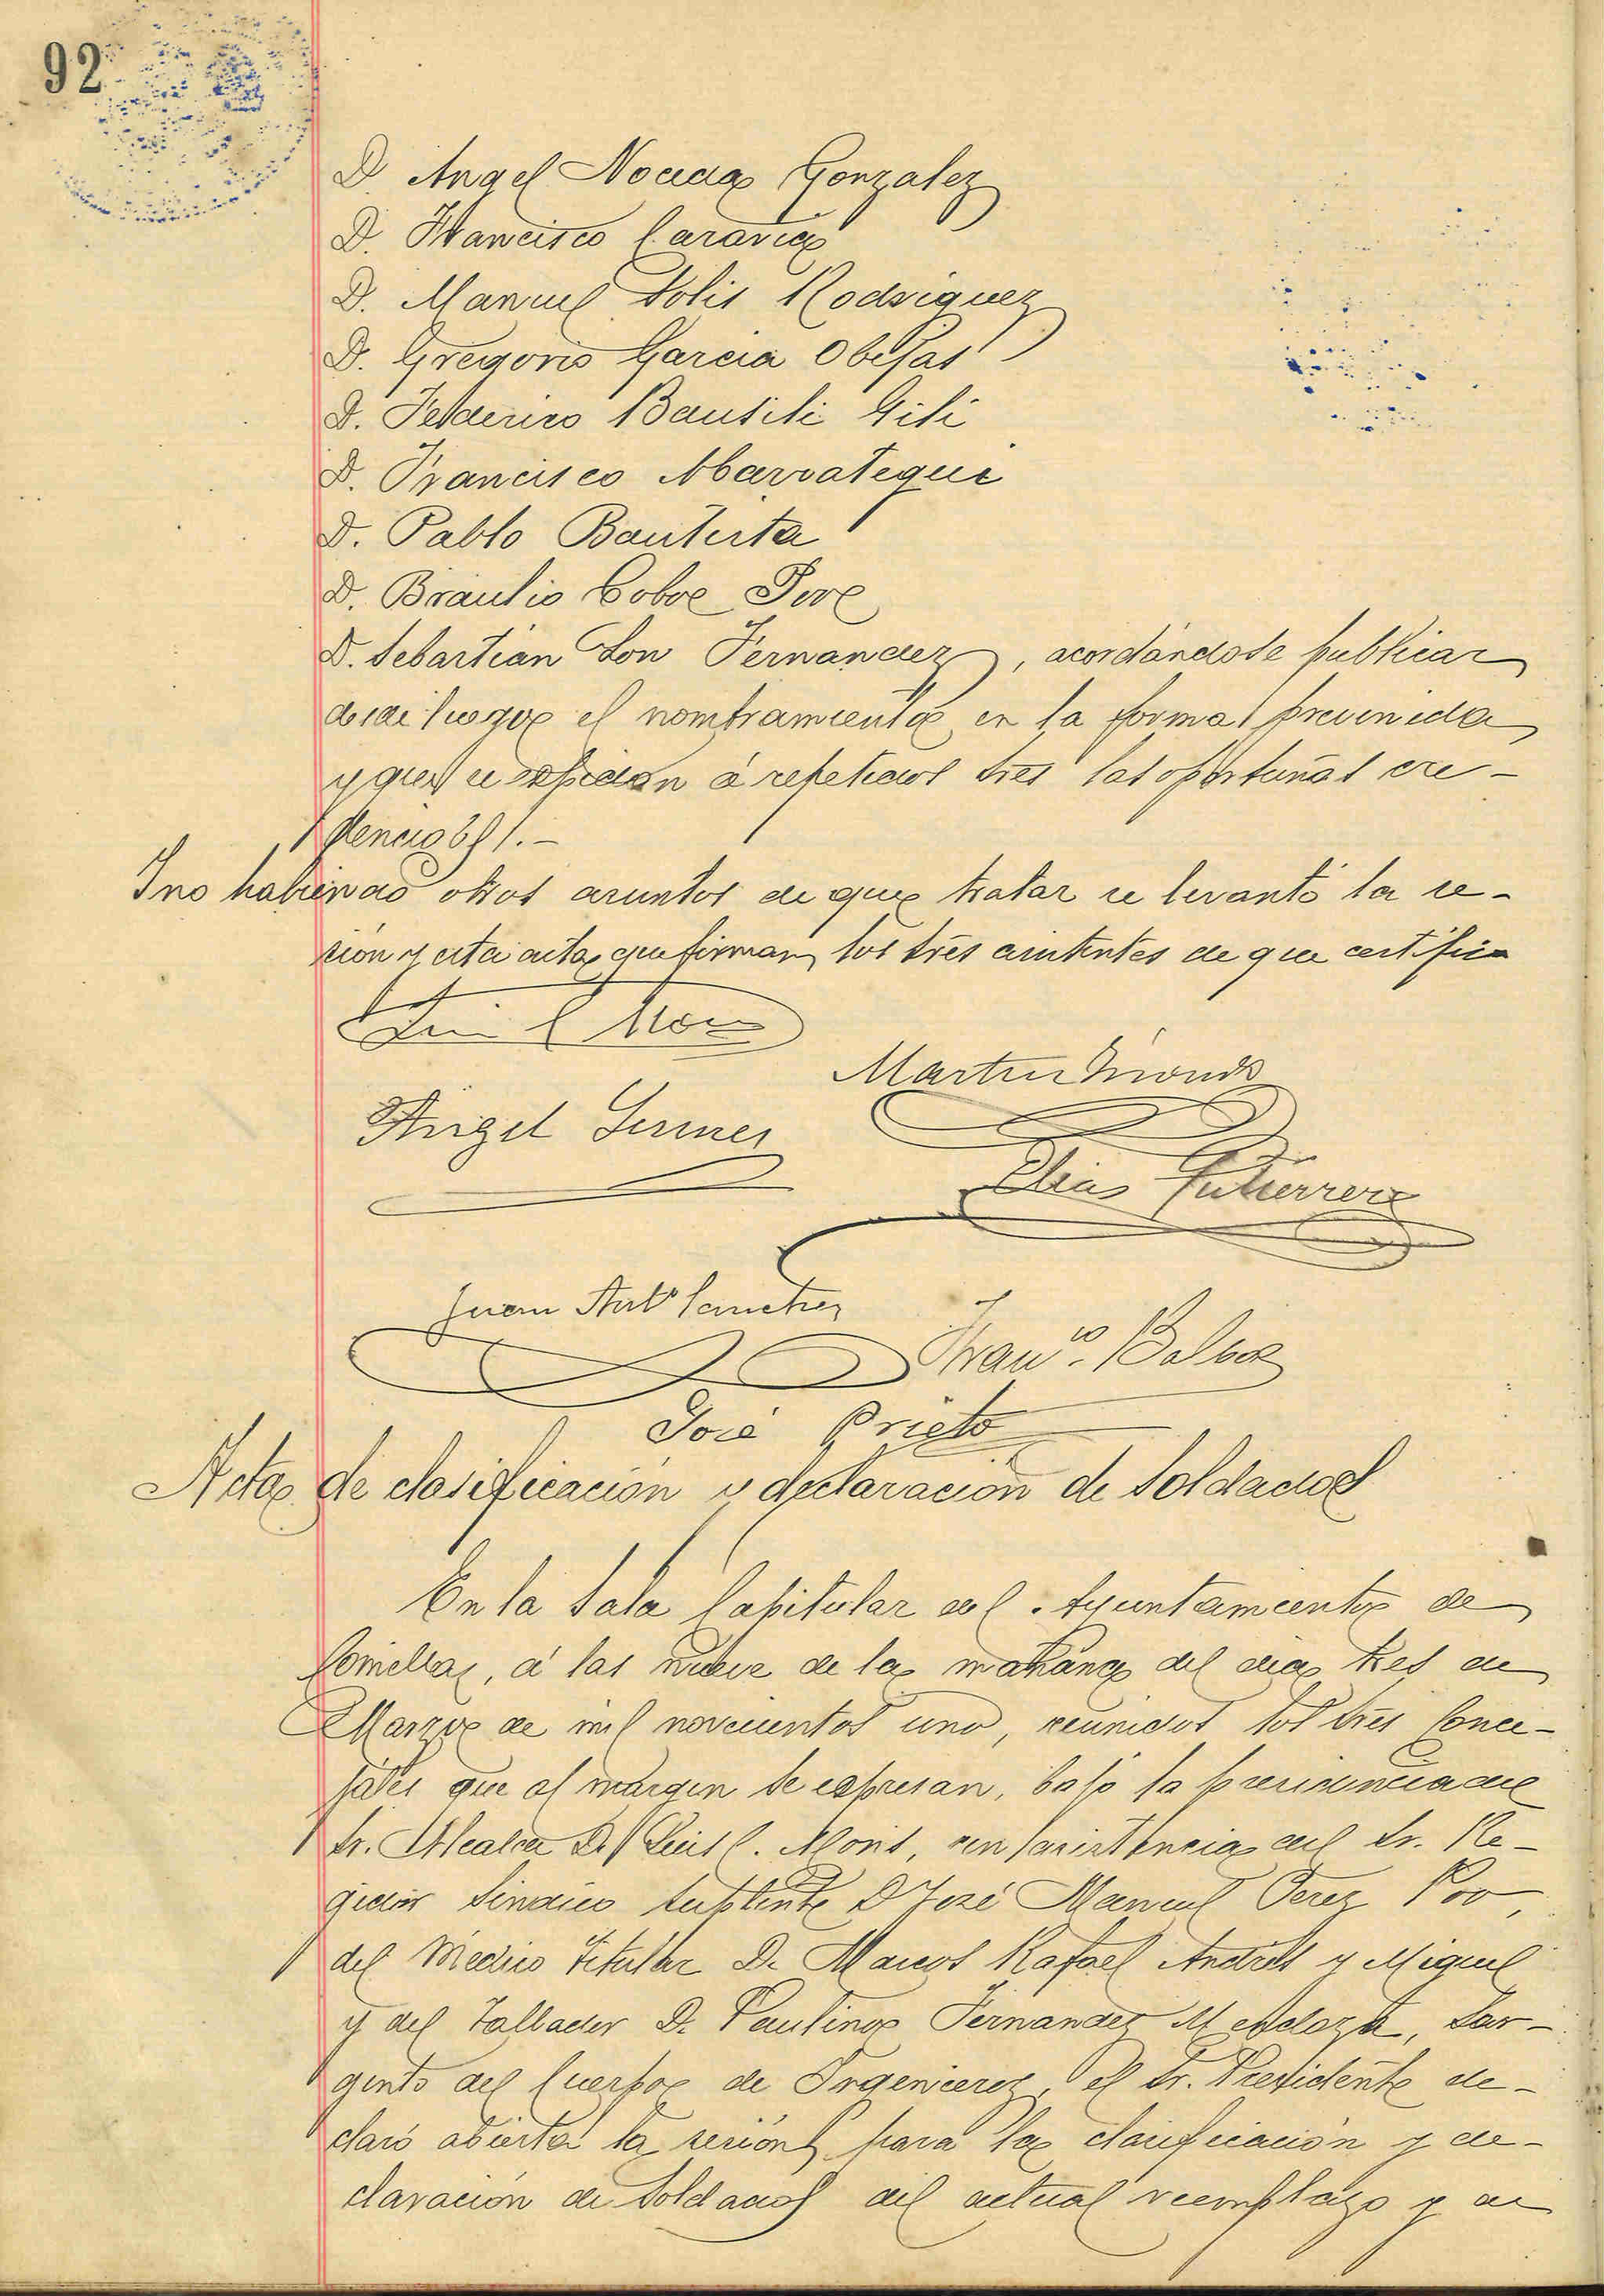 92
D. Angel Noceda Gonzalez
D. Francisco Caravia
D. Manuel Solis Rodriguez
D. Gregorio Garcia Obesas
D. Federico Gili
D. Francisco Marrategui
D. Pablo Bautista
D. Braulio Cobo
D. Sebastian Son Fernandez, acordándose publicar
desde luego el nombramiento en la forma prevenida
y que se espidan á repetidos sres las oportunas cre-
denciales.-
Y no habiendo otros asuntos de que tratar se levantó la se-
sión y esta acta que firman los sres asistentes de que certifico
Luis C. Moris
Martin
Angel
Elias Gutierrez
Juan Antº Sanchez
Franco. Balbas
José Prieto
Acta de clasificación y declaración de Soldados
En la Sala Capitular del Ayuntamiento de
Comillas, á las nueve de la mañana del dia tres de
Marzo de mil novecientos uno, reunidos los sres Conce-
jales que al margen se espresan, bajo la presidencia del
Sr. Alcalde D. Luis C. Moris, con asistencia del Sr. Re-
gidor Sindico suplente D José Manuel Perez Poo,
del Médico titular D. Marcos Rafael Andrés y Miguel
y del Tallador D. Paulino Fernandez Mendoza, Sar-
gento del Cuerpo de Ingenieros, el Sr. Presidente de-
claró abierta la sesión para la clasificación y de-
claración de Soldados del actual reemplazo y de